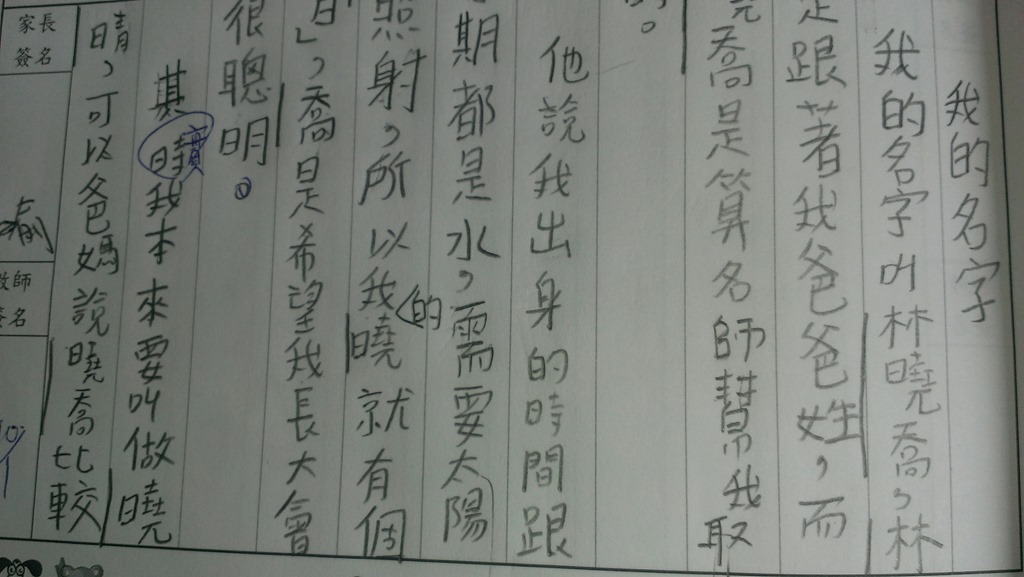 我的名字
我的名字叫林曉喬,林
是跟著我爸爸姓,而
喬是算名師幫我取
的。
他說我出身的時間跟
期都是水,需要太陽
照射,所以我的曉就有個
日」,喬是希望我長大會
很聰明。
其實我本來要叫做曉
晴,可以爸媽說曉喬比較
家長
簽名
教師
簽名